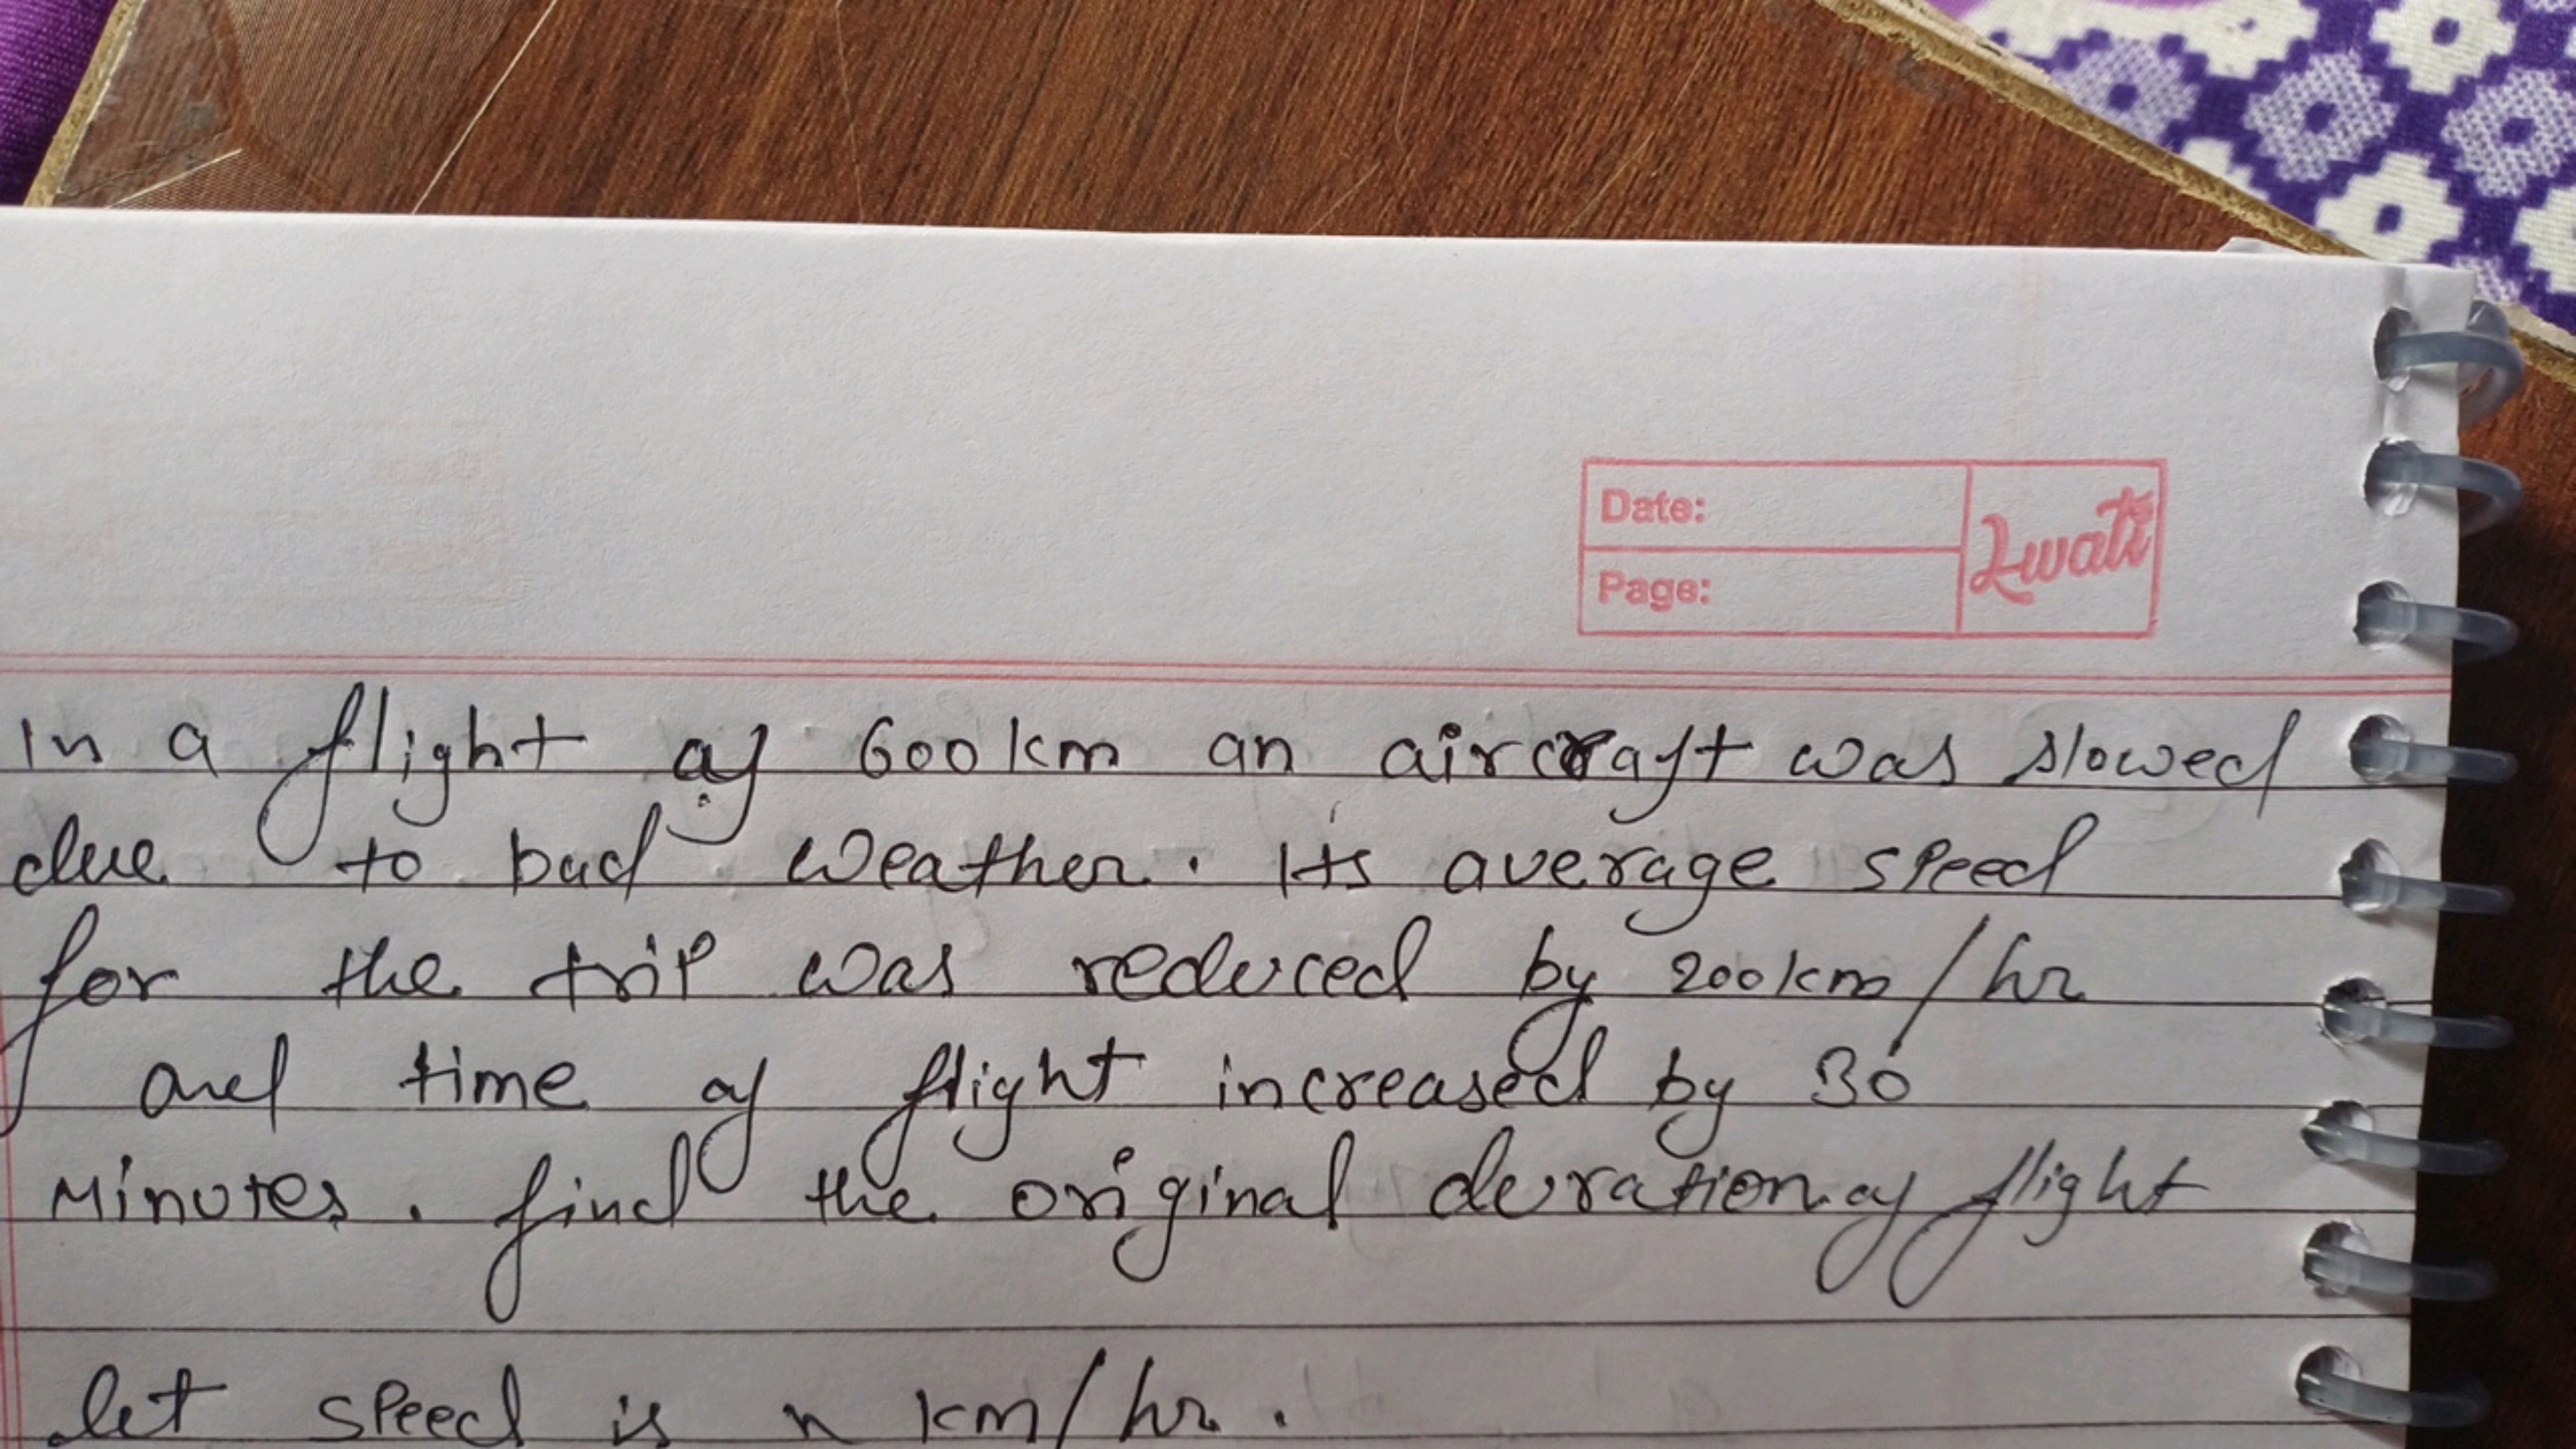 Date:
Page:
Lwati
In a flight of 600km an aircraft was slowed
due to bad weather. Its average speed
for the trip was reduced by 200km/hr
and time of flight increased by 30
Minutes. find the original duration of flight
let speed is x km/hr.